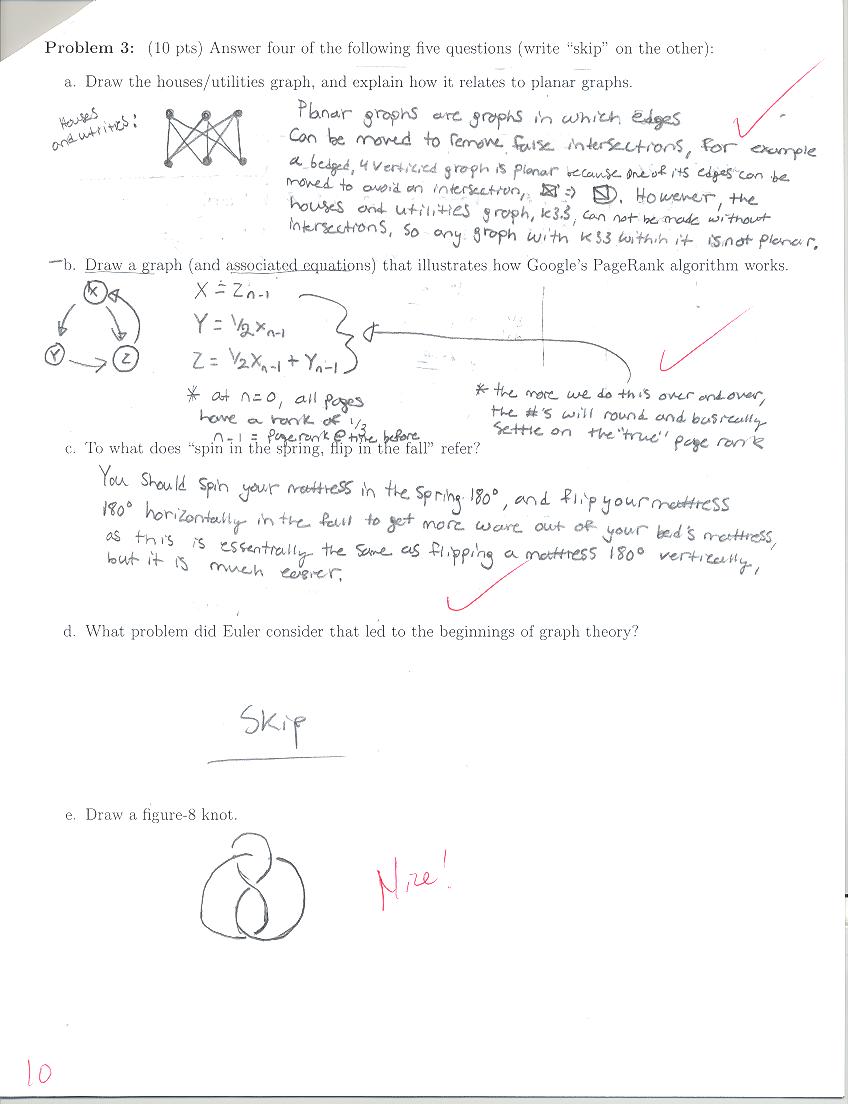 Problem 3: (10 pts) Answer four of the following five questions (write “skip” on the other):
a. Draw the houses/utilities graph, and explain how it relates to planar graphs.
Houses
and utilities:
Planar graphs are graphs in which edges
Can be moved to remove false intersections, For example
a 6edged, 4 verticied graph is planar because one of its edges can be
moved to avoid an intersection, ⇒ . However, the
houses and utilities graph, k3.3, can not be made without
intersections, so any graph with k33 within it is not planar.
b. Draw a graph (and associated equations) that illustrates how Google's PageRank algorithm works.
X
Y
Z
X = Zn-1
Y = 1/2 Xn-1
Z = 1/2 Xn-1 + Yn-1
* at n=0, all pages
have a rank of 1/3
n-1 = Page rank @ time before
* the more we do this over and over,
the #'s will round and
settle on the "true" page rank
c. To what does “spin in the spring, flip in the fall” refer?
You should spin your mattress in the spring 180°, and flip your mattress
180° horizontally in the fall to get more ware out of your bed's mattress,
as this is essentially the same as flipping a mattress 180° vertically,
but it is much easier.
d. What problem did Euler consider that led to the beginnings of graph theory?
Skip
e. Draw a figure-8 knot.
Nice!
10